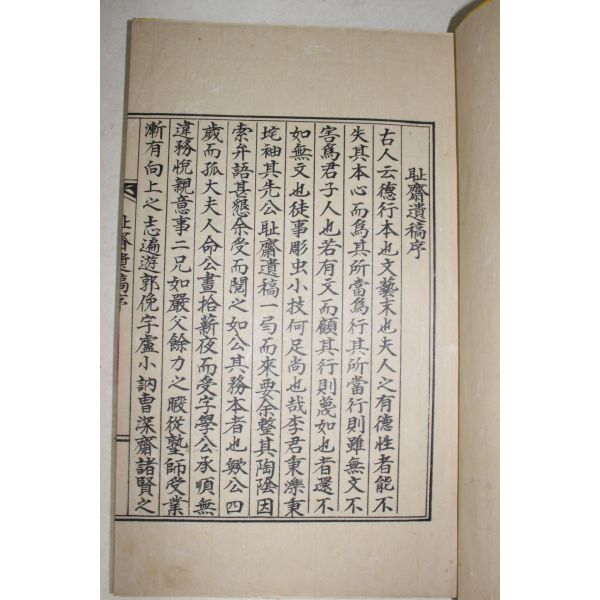 耻齋遺稿序
古人云德行本也文藝末也夫人之有德性者能不
失其本心而爲其所當爲行其所當行則雖無文不
害爲君子人也若有文而顧其行則蔑如也者還不
如無文也徒事彫虫小技何足尚也哉李君秉濼秉
垞袖其先公耻齋遺稿一局而來要余整其陶陰因
索弁語甚懇余受而閱之如公其務本者也歟公四
歲而孤大夫人命公晝拾薪夜而受字學公承順無
違務悅親意事二兄如嚴父餘力之暇從塾師受業
漸有向上之志遍遊郭俛宇盧小訥曺深齋諸賢之
耻齋遺稿序